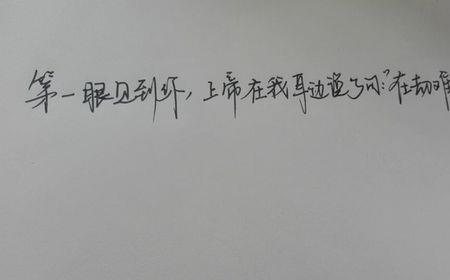 第一眼见到你，上帝在我耳边说了句:"在劫难